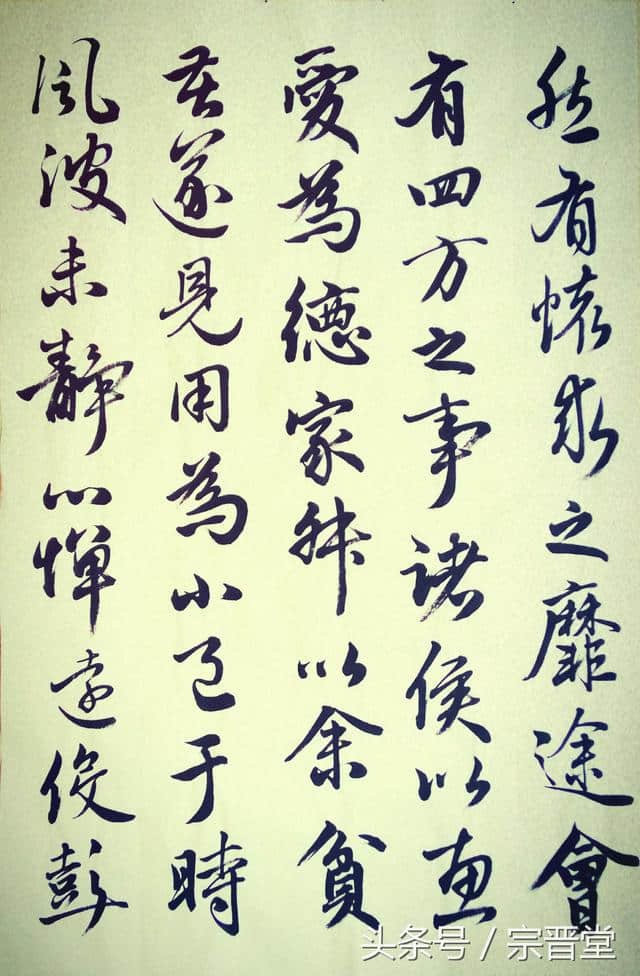 然有懷求之靡途會
有四方之事諸侯以惠
愛為德家叔以余貧
苦遂見用為小邑于時
風波未靜心憚遠役彭
头条号 / 宗晋堂